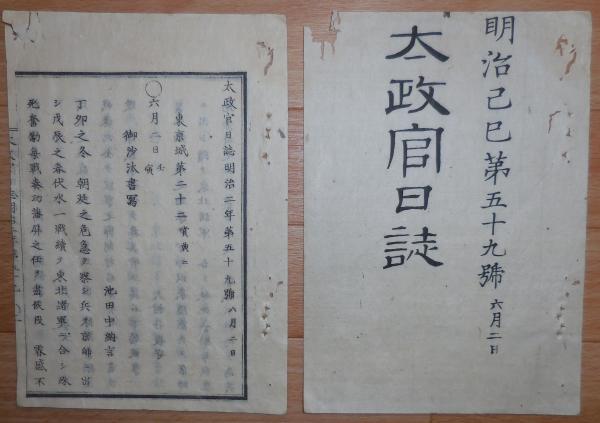 明治己巳第五十九號 六月二日
太政官日誌
太政官日誌明治二年第五十九號 六月二日
東京城第二十二
六月二日 壬寅
御沙汰書寫
池田中納言
丁卯之冬 朝廷之危急ヲ察シ兵ヲ京師ニ出
シ戊辰之春伏水一戰續テ東北諸軍ニ合シ殊
死奮勵每戰奏功藩屏之任ヲ盡候段 叡感不